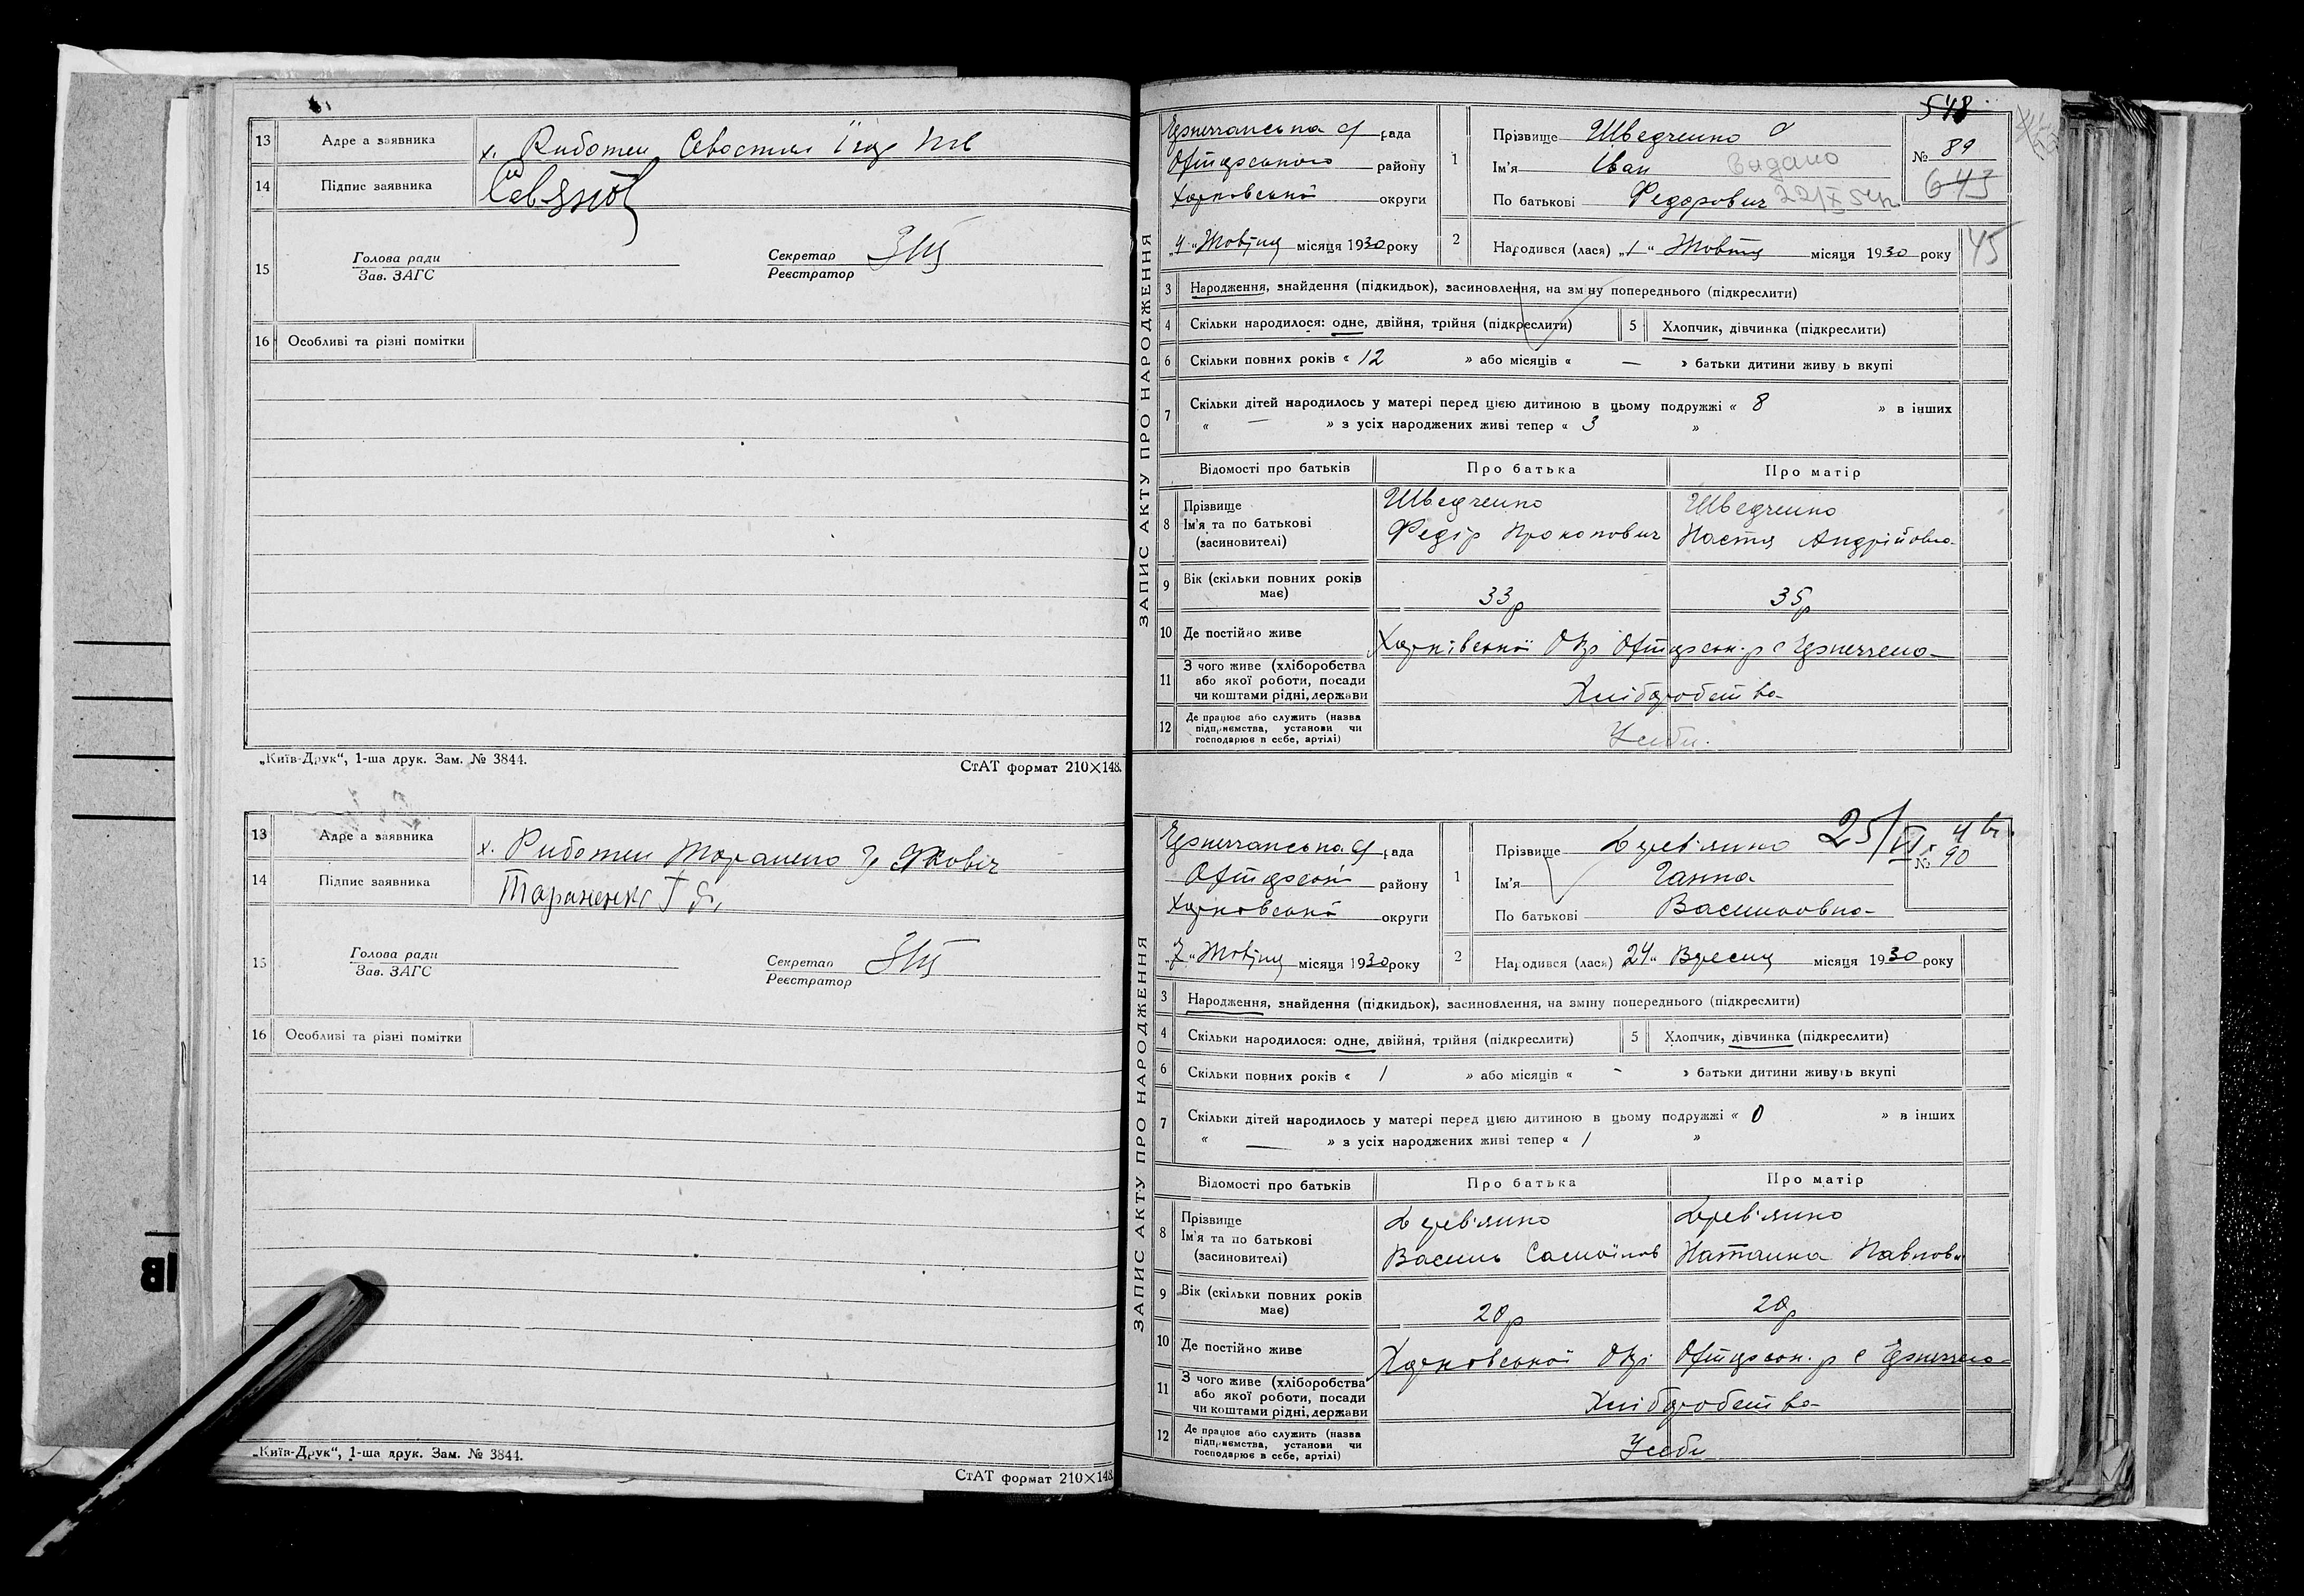 13 Адре а заявника х.
14 Підпис заявника
15 Голова ради
Зав. ЗАГС
Секретар
Реєстратор
16 Особливі та різні помітки
„Київ-Друк“, 1-ша друк. Зам. № 3844.
СтАТ формат 210×148.
13 Адре а заявника х.
14 Підпис заявника Тараненко Г Я,
15 Голова ради
Зав. ЗАГС
Секретар
Реєстратор
16 Особливі та різні помітки
„Київ-Друк“, 1-ша друк. Зам. № 3844.
СтАТ формат 210×148.
ЗАПИС АКТУ ПРО НАРОДЖЕННЯ
548
рада
району
Харковської округи
„4“ Жовтня місяця 1930 року
1 Прізвище Шведченко
Ім'я Іван Видано
По батькові Федорович 22/X 54р.
№ 89
643
2 Народився (лася) „1“ Жовтня місяця 1930 року
45
3 Народження, знайдення (підкидьок), засиновлення, на зміну попереднього (підкреслити)
4 Скільки народилося: одне, двійня, трійня (підкреслити)
5 Хлопчик, дівчинка (підкреслити)
6 Скільки повних років « 12 » або місяців « — » батьки дитини живу ь вкупі
7 Скільки дітей народилось у матері перед цією дитиною в цьому подружжі « 8 » в інших
« — » з усіх народжених живі тепер « 3 »
Відомості про батьків Про батька Про матір
8 Прізвище
Ім'я та по батькові
(засиновителі)
Шведченко
Федір Прокопович
Шведченко
Настя Андрійовна
9 Вік (скільки повних років
має)
33р 35р
10 Де постійно живе Харківської Окр
11 З чого живе (хліборобства
або якої роботи, посади
чи коштами рідні, держави
Хліборобства
12 Де працює або служить (назва
підприємства, установи чи
господарює в себе, артілі)
У себи.
ЗАПИС АКТУ ПРО НАРОДЖЕННЯ
рада
району
Харковської округи
„7“ Жовтня місяця 1930 року
1 Прізвище Дерев'янко
Ім'я Ганна
По батькові Васильовна
25/VI
№ 90
2 Народився (лася) 24“ Вересня місяця 1930 року
3 Народження, знайдення (підкидьок), засиновлення, на зміну попереднього (підкреслити)
4 Скільки народилося: одне, двійня, трійня (підкреслити)
5 Хлопчик, дівчинка (підкреслити)
6 Скільки повних років « 1 » або місяців « - » батьки дитини живуть вкупі
7 Скільки дітей народилось у матері перед цією дитиною в цьому подружжі « 0 » в інших
« — » з усіх народжених живі тепер « 1 »
Відомості про батьків Про батька Про матір
8 Прізвище
Ім'я та по батькові
(засиновителі)
Дерев'янко
Василь Самойлов
Дерев'янко
Наталка Павловн
9 Вік (скільки повних років
має)
20р 20р
10 Де постійно живе Харковської Окр
11 З чого живе (хліборобства
або якої роботи, посади
чи коштами рідні, держави
Хліборобства
12 Де працює або служить (назва
підприємства, установи чи
господарює в себе, артілі)
У себи